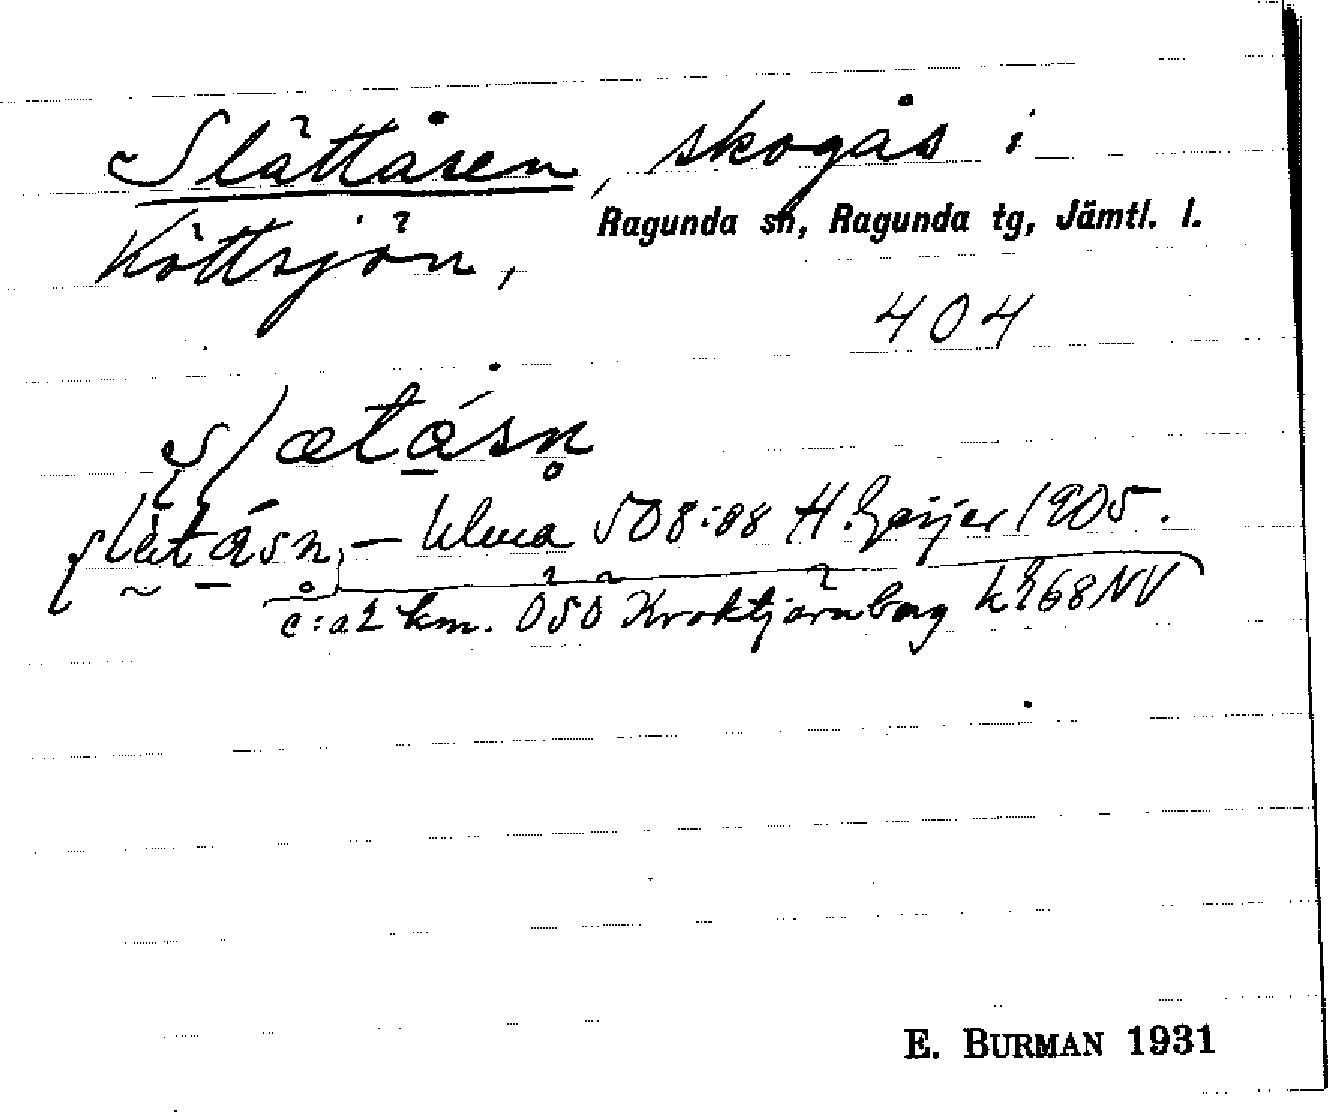 Slättåsen, skogås i
Köttsjön, Ragunda sn, Ragunda tg, Jämtl. l.
404
— Ulma 508:08 H. Geijer 1905.
c:a 2 km. ÖSÖ Kroktjärnberg
E. BURMAN 1931